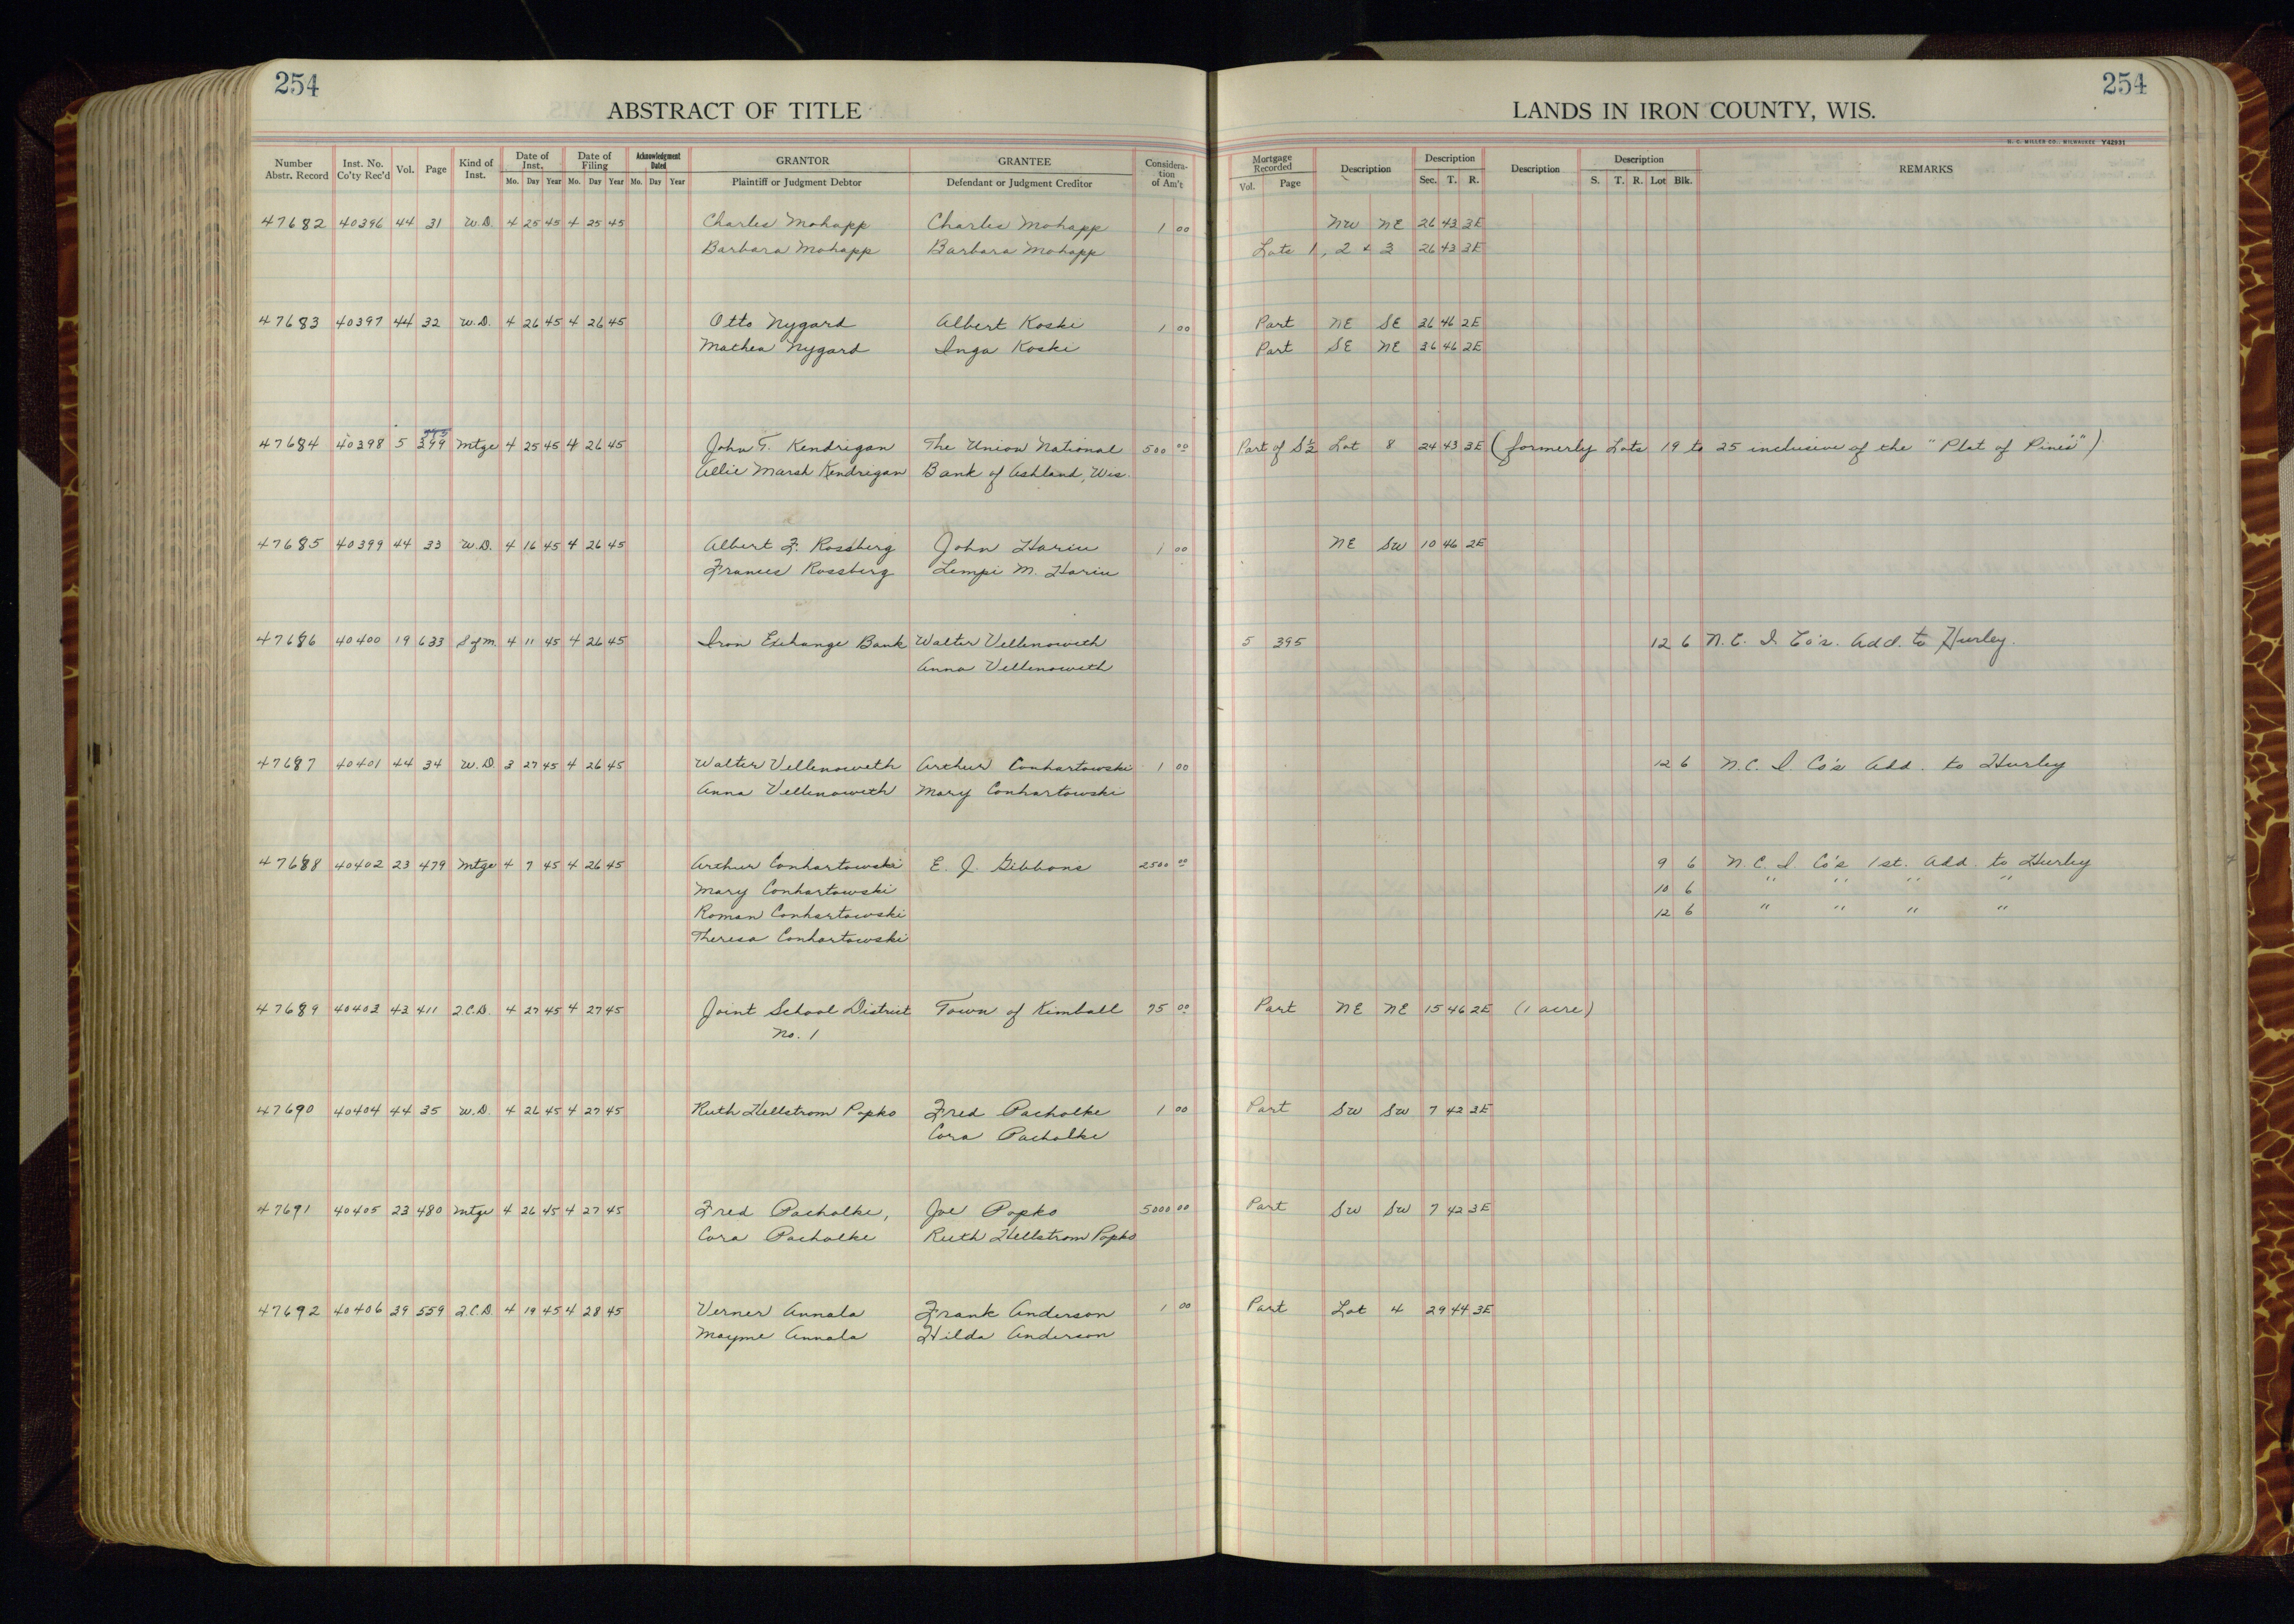 254
254
ABSTRACT OF TITLE
LANDS IN IRON COUNTY, WIS.
H. C. MILLER CO., MILWAUKEE Y42931
Number Abstr. Record Inst. No. Co'ty Rec'd Vol. Page Kind of Inst. Date of Inst. Mo. Day Year Date of Filing Mo. Day Year Acknowledgment Dated Mo. Day Year GRANTOR Plaintiff or Judgment Debtor GRANTEE Defendant or Judgment Creditor Considera-tion of Am't Mortgage Recorded Vol. Page Description Description Sec. T. R. Description Description S. T. R. Lot Blk. REMARKS
47682 40396 44 31 W.D. 4 25 45 4 25 45 Charles Mohapp Charles Mohapp 1 00 NW NE 26 43 3E
Barbara Mohapp Barbara Mohapp Lots 1, 2 & 3 26 43 3E
47683 40397 44 32 W.D. 4 26 45 4 26 45 Otto Nygard Albert Koski 1 00 Part NE SE 36 46 2E
Mathea Nygard Inga Koski Part SE NE 36 46 2E
47684 40398 5 399 Mtge 4 25 45 4 26 45 John T. Kendrigan The Union National 500 00 Part of S½ Lot 8 24 43 3E (formerly Lots 19 to 25 inclusive of the "Plat of Pines")
Allie Marsh Kendrigan Bank of Ashland, Wis.
47685 40399 44 33 W.D. 4 16 45 4 26 45 Albert F. Rossberg John Hariu 1 00 NE SW 10 46 2E
Frances Rossberg Lempi M. Hariu
47686 40400 19 633 S of M. 4 11 45 4 26 45 Iron Exchange Bank Walter Vellenoweth 5 395 12 6 N.C. I Co's. Add. to Hurley.
Anna Vellenoweth
47687 40401 44 34 W.D. 3 27 45 4 26 45 Walter Vellenoweth Arthur Conhartowski 1 00 12 6 N.C. I. Co's Add. to Hurley
Anna Vellenoweth Mary Conhartowski
47688 40402 23 479 Mtge 4 7 45 4 26 45 Arthur Conhartowski E. J. Gibbons 2500 00 9 6 N.C. I Co's 1st. Add. to Hurley
Mary Conhartowski 10 6 " " " "
Roman Conhartowski 12 6 " " " "
Theresa Conhartowski
47689 40403 43 411 2.C.D. 4 27 45 4 27 45 Joint School District Town of Kimball 75 00 Part NE NE 15 46 2E (1 acre)
No. 1
47690 40404 44 35 W.D. 4 26 45 4 27 45 Ruth Hellstrom Popko Fred Pacholke 1 00 Part SW SW 7 42 3E
Cora Pacholke
47691 40405 23 480 Mtge 4 26 45 4 27 45 Fred Pacholke, Joe Popko 5000 00 Part SW SW 7 42 3E
Cora Pacholke Ruth Hellstrom Popko
47692 40406 39 559 2.C.D. 4 19 45 4 28 45 Verner Annala Frank Anderson 1 00 Part Lot 4 29 44 3E
Mayme Annala Hilda Anderson